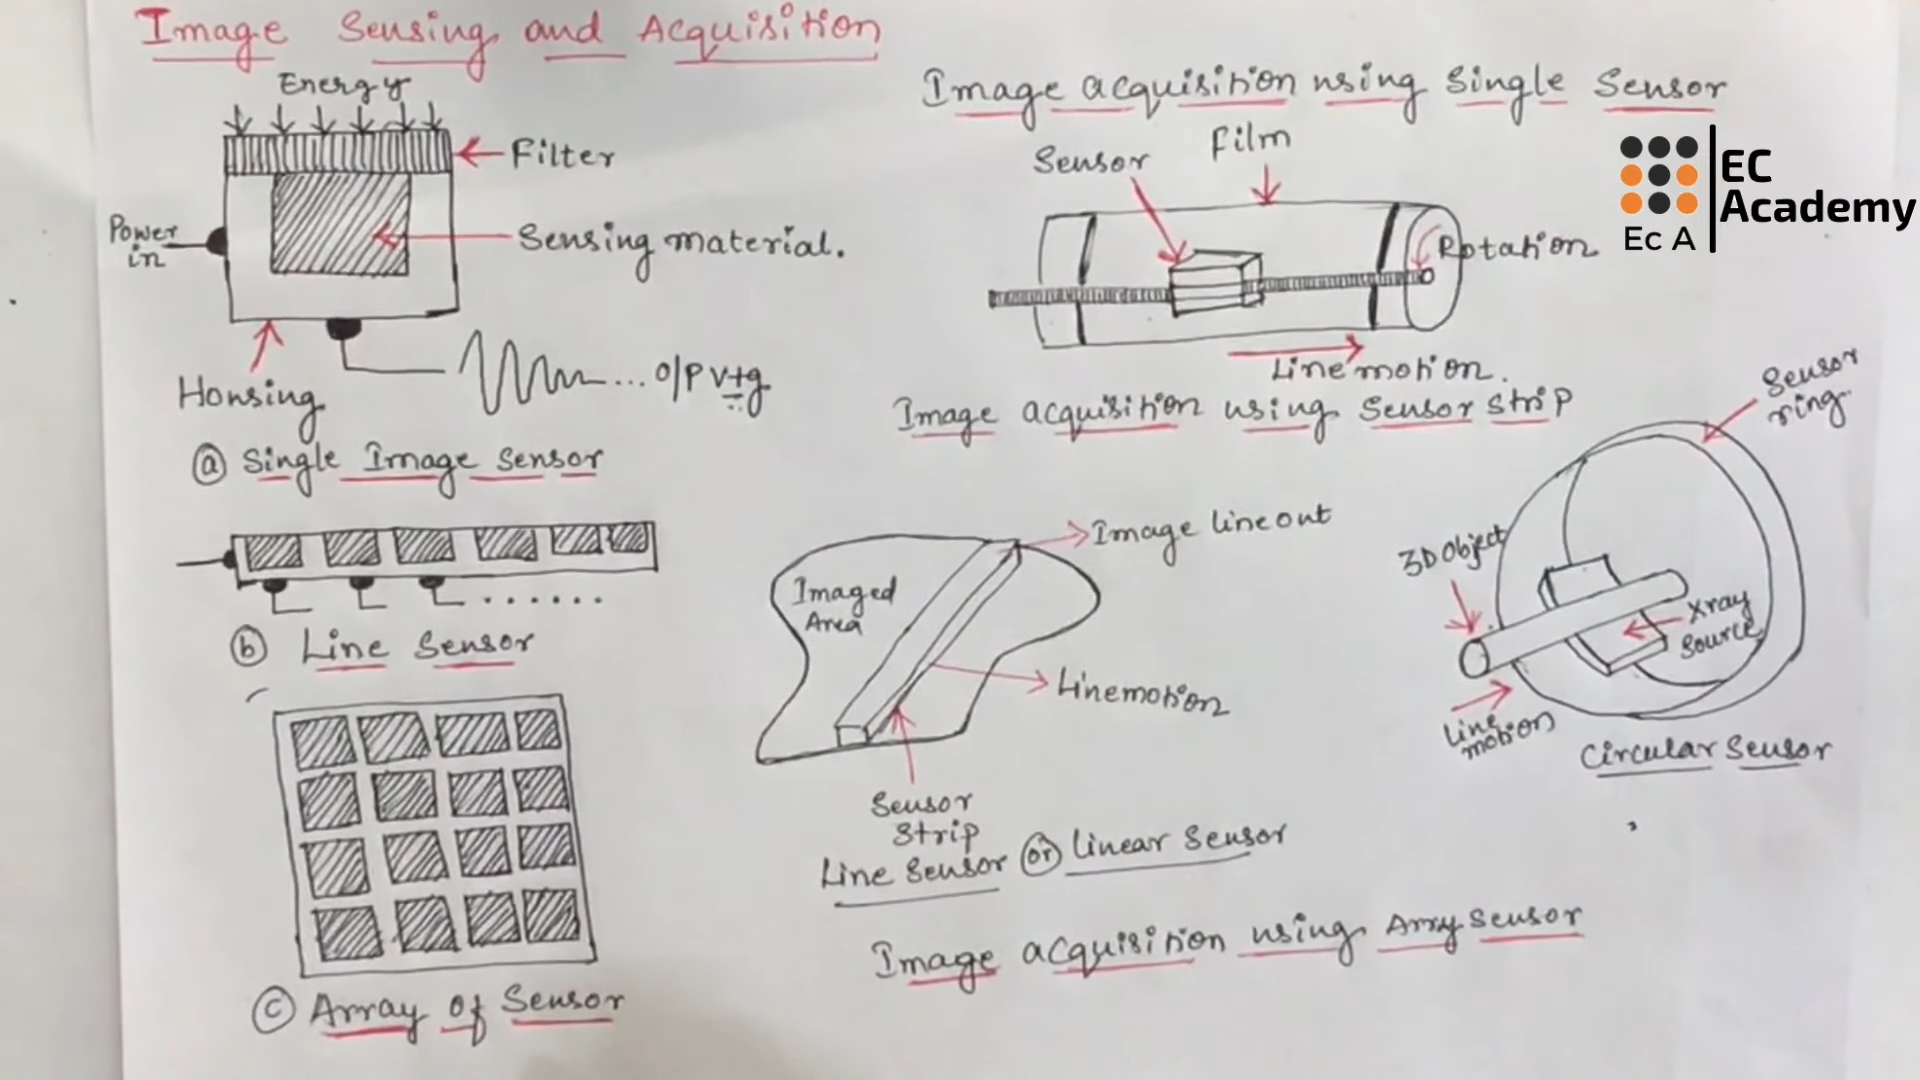 Image Sensing and Acquisition
Energy
Filter
Power
in
Sensing material.
Housing
... O/P Vtg
(a) Single Image Sensor
(b) Line Sensor
(c) Array of Sensor
Image acquisition using Single Sensor
Sensor
Film
Rotation
Line motion.
EC
Academy
Ec A
Image acquisition using Sensor Strip
Imaged
Area
Image line out
Line motion
Sensor
Strip
Line Sensor (or) Linear Sensor
Sensor
ring
3D Object
Xray
Source
Line
motion
Circular Sensor
Image acquisition using Array Sensor